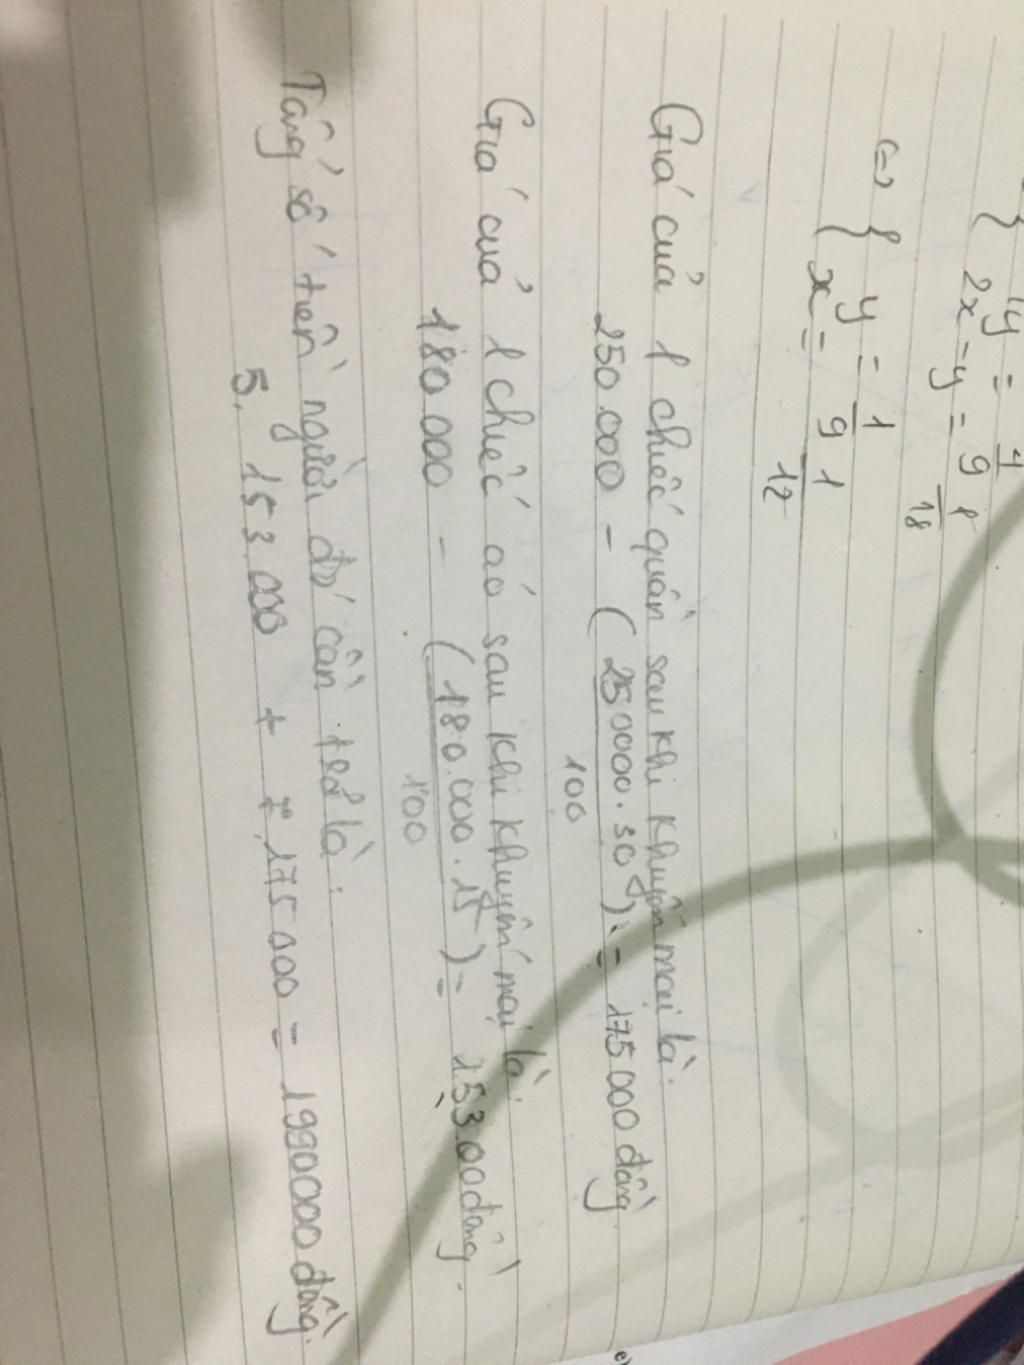 { y = 1/9
2x - y = 1/18
(=) { y = 1/9
x = 1/12
Giá của 1 chiếc quần sau khi khuyến mại là:
250.000 - (250000.30/100) = 175000 đồng
Giá của 1 chiếc áo sau khi khuyến mại là:
180.000 - (180.000.15/100) = 153.00 đồng.
Tổng số tiền người đó cần trả là:
5.153.000 + 7.175000 = 1990000 đồng.